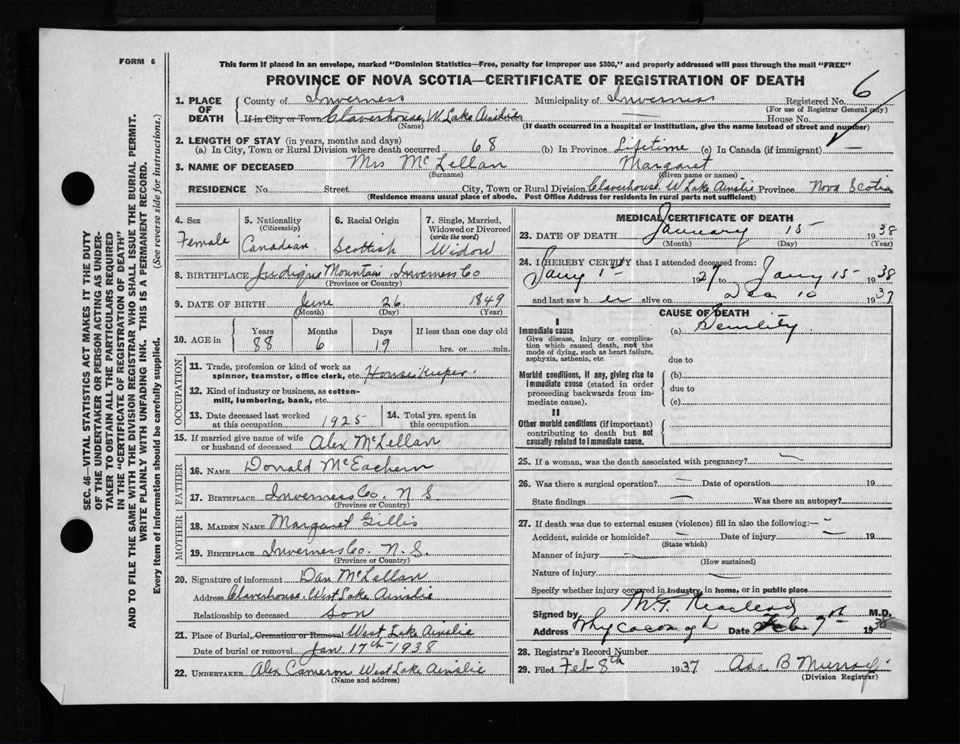 FORM 6
This form if placed in an envelope, marked "Dominion Statistics—Free, penalty for improper use $300," and properly addressed will pass through the mail "FREE"
PROVINCE OF NOVA SCOTIA—CERTIFICATE OF REGISTRATION OF DEATH
1. PLACE OF DEATH County of Inverness Municipality of Inverness Registered No. 6
(For use of Registrar General only)
If in City or Town Claverhouse, W. Lake Ainslie House No.
(Name) (If death occurred in a hospital or institution, give the name instead of street and number)
2. LENGTH OF STAY (in years, months and days)
(a) In City, Town or Rural Division where death occurred 68 (b) In Province Lifetime (c) In Canada (if immigrant) —
3. NAME OF DECEASED Mrs McLellan Margaret
(Surname) (Given name or names)
RESIDENCE No. Street City, Town or Rural Division Claverhouse, W Lake Ainslie Province Nova Scotia
(Residence means usual place of abode. Post Office Address for residents in rural parts not sufficient)
4. Sex
Female
5. Nationality
(Citizenship)
Canadian
6. Racial Origin
Scottish
7. Single, Married, Widowed or Divorced
(write the word)
Widow
8. BIRTHPLACE Judique Mountain, Inverness Co
(Province or Country)
9. DATE OF BIRTH June 26 1849
(Month) (Day) (Year)
10. AGE in Years Months Days If less than one day old
88 6 19 hrs. or min.
OCCUPATION
11. Trade, profession or kind of work as
spinner, teamster, office clerk, etc. House Keeper.
12. Kind of industry or business, as cotton-
mill, lumbering, bank, etc.
13. Date deceased last worked
at this occupation 1925
14. Total yrs. spent in
this occupation
15. If married give name of wife
or husband of deceased Alex McLellan
FATHER
16. NAME Donald McEachern
17. BIRTHPLACE Inverness Co. N.S
(Province or Country)
MOTHER
18. MAIDEN NAME Margaret Gillis
19. BIRTHPLACE Inverness Co. N.S.
(Province or Country)
20. Signature of informant Dan McLellan
Address Claverhouse, West Lake Ainslie
Relationship to deceased Son
21. Place of Burial, Cremation or Removal West Lake Ainslie
Date of burial or removal Jan 17th 1938
22. UNDERTAKER Alex Cameron West Lake Ainslie
(Name and address)
MEDICAL CERTIFICATE OF DEATH
23. DATE OF DEATH January 15 1938
(Month) (Day) (Year)
24. I HEREBY CERTIFY that I attended deceased from:
Jany 1st 1927 Jany 15 1938
and last saw her alive on Dec 10 1937
CAUSE OF DEATH
I
Immediate cause (a) Senility
Give disease, injury or complica-
tion which caused death, not the
mode of dying, such as heart failure,
asphyxia, asthenia, etc.
due to
Morbid conditions, if any, giving rise to
immediate cause (stated in order
proceeding backwards from im-
mediate cause).
(b)
due to
(c)
II
Other morbid conditions (if important)
contributing to death but not
causally related to immediate cause.
25. If a woman, was the death associated with pregnancy? —
26. Was there a surgical operation? — Date of operation 19
State findings — Was there an autopsy?
27. If death was due to external causes (violence) fill in also the following:— —
Accident, suicide or homicide? — Date of injury — 19
(State which)
Manner of injury —
(How sustained)
Nature of injury
Specify whether injury occurred in industry, in home, or in public place
Signed by M.T. MacLeod M.D.
Address Whycocomagh Date Feb 7th 1938
28. Registrar's Record Number
29. Filed Feb 8th 1937 Asa B Murray
(Division Registrar)
SEC. 46—VITAL STATISTICS ACT MAKES IT THE DUTY
OF THE UNDERTAKER OR PERSON ACTING AS UNDER-
TAKER TO OBTAIN ALL THE PARTICULARS REQUIRED
IN THE "CERTIFICATE OF REGISTRATION OF DEATH"
AND TO FILE THE SAME WITH THE DIVISION REGISTRAR WHO SHALL ISSUE THE BURIAL PERMIT.
WRITE PLAINLY WITH UNFADING INK. THIS IS A PERMANENT RECORD.
Every item of information should be carefully supplied. (See reverse side for instructions.)